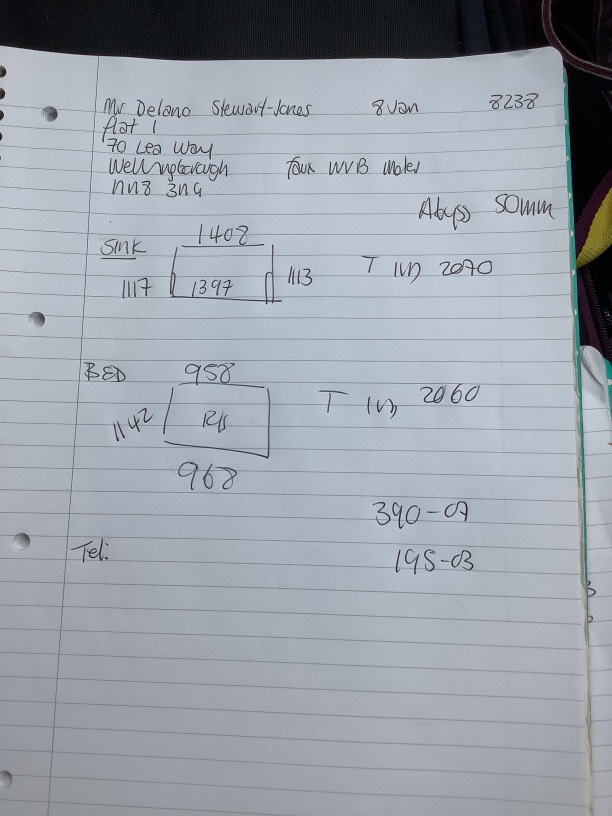 Mr Delano Stewart-Jones 8 Jan 8238
flat 1
70 Lea Way
Wellingborough faux WVB
nn8 3nG
Abyss 50mm
SINK 1408
1117 1397 1113 T 2070
BED 958
1142 T 2060
968
390-07
195-03
Tel: